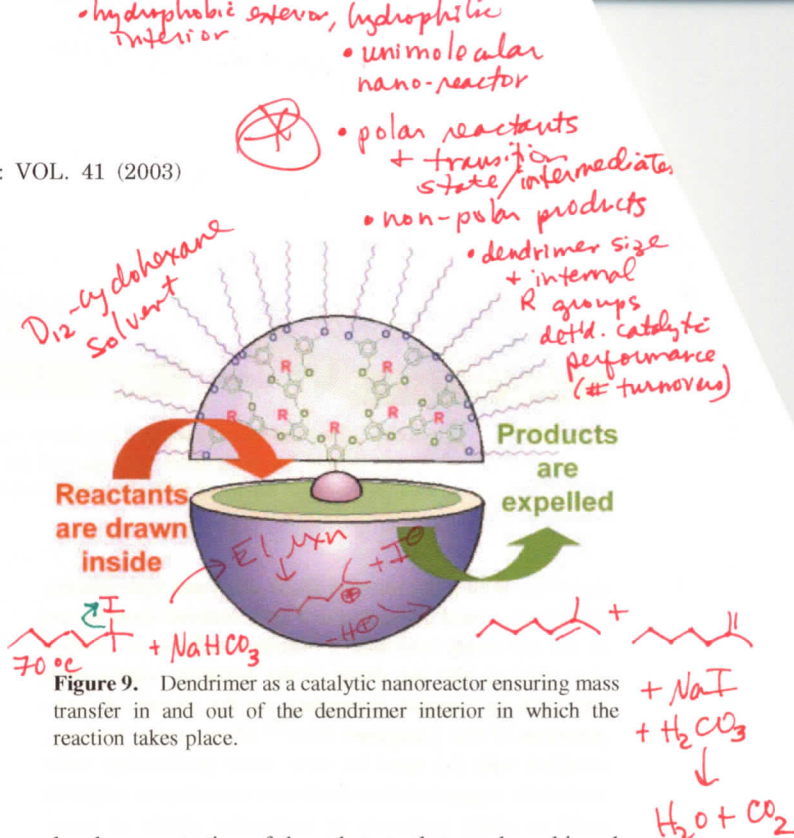 • hydrophobic exterior, hydrophilic
interior
• unimolecular
nano-reactor
• polar reactants
+ transition
state/intermediates
: VOL. 41 (2003)
• non-polar products
• dendrimer size
+ internal
R groups
det'd. catalytic
performance
(# turnovers)
D12-cyclohexane
solvent
R
R
R
R
R
R
R
Products
are
expelled
Reactants
are drawn
inside
E1 rxn
+ I⊖
⊕
-H⊕
I
+ NaHCO3
70 °C
+
+ NaI
+ H2CO3
↓
H2O + CO2
Figure 9. Dendrimer as a catalytic nanoreactor ensuring mass
transfer in and out of the dendrimer interior in which the
reaction takes place.